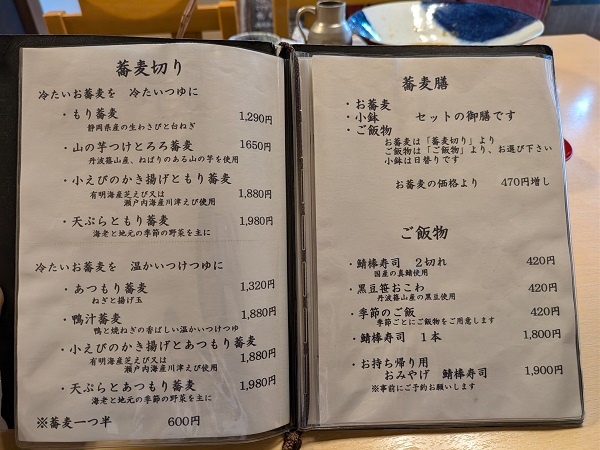 蕎麦切り
冷たいお蕎麦を　冷たいつゆに
・もり蕎麦　1,290円
静岡県産の生わさびと白ねぎ
・山の芋つけとろろ蕎麦　1650円
丹波篠山産、ねばりのある山の芋を使用
・小えびのかき揚げともり蕎麦
有明海産芝えび又は　1,880円
瀬戸内海産川津えび使用
・天ぷらともり蕎麦　1,980円
海老と地元の季節の野菜を主に
冷たいお蕎麦を　温かいつけつゆに
・あつもり蕎麦　1,320円
ねぎと揚げ玉
・鴨汁蕎麦　1,880円
鴨と焼ねぎの香ばしい温かいつけつゆ
・小えびのかき揚げとあつもり蕎麦
有明海産芝えび又は　1,880円
瀬戸内海産川津えび使用
・天ぷらとあつもり蕎麦　1,980円
海老と地元の季節の野菜を主に
※蕎麦一つ半　600円
蕎麦膳
・お蕎麦
・小鉢　セットの御膳です
・ご飯物
お蕎麦は「蕎麦切り」より
ご飯物は「ご飯物」より、お選び下さい
小鉢は日替りです
お蕎麦の価格より　470円増し
ご飯物
・鯖棒寿司　2切れ　420円
国産の真鯖使用
・黒豆笹おこわ　420円
丹波篠山産の黒豆使用
・季節のご飯　420円
季節ごとにご飯物をご用意します
・鯖棒寿司　1本　1,800円
・お持ち帰り用
おみやげ　鯖棒寿司　1,900円
※事前にご予約お願いします